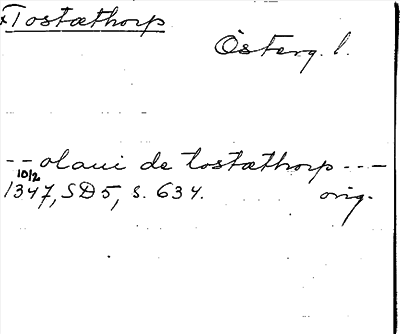 ×Tostæthorp
Österg. l.
-- olaui de tostæthorp ---
10/2
1347, SD5, s. 634. orig.